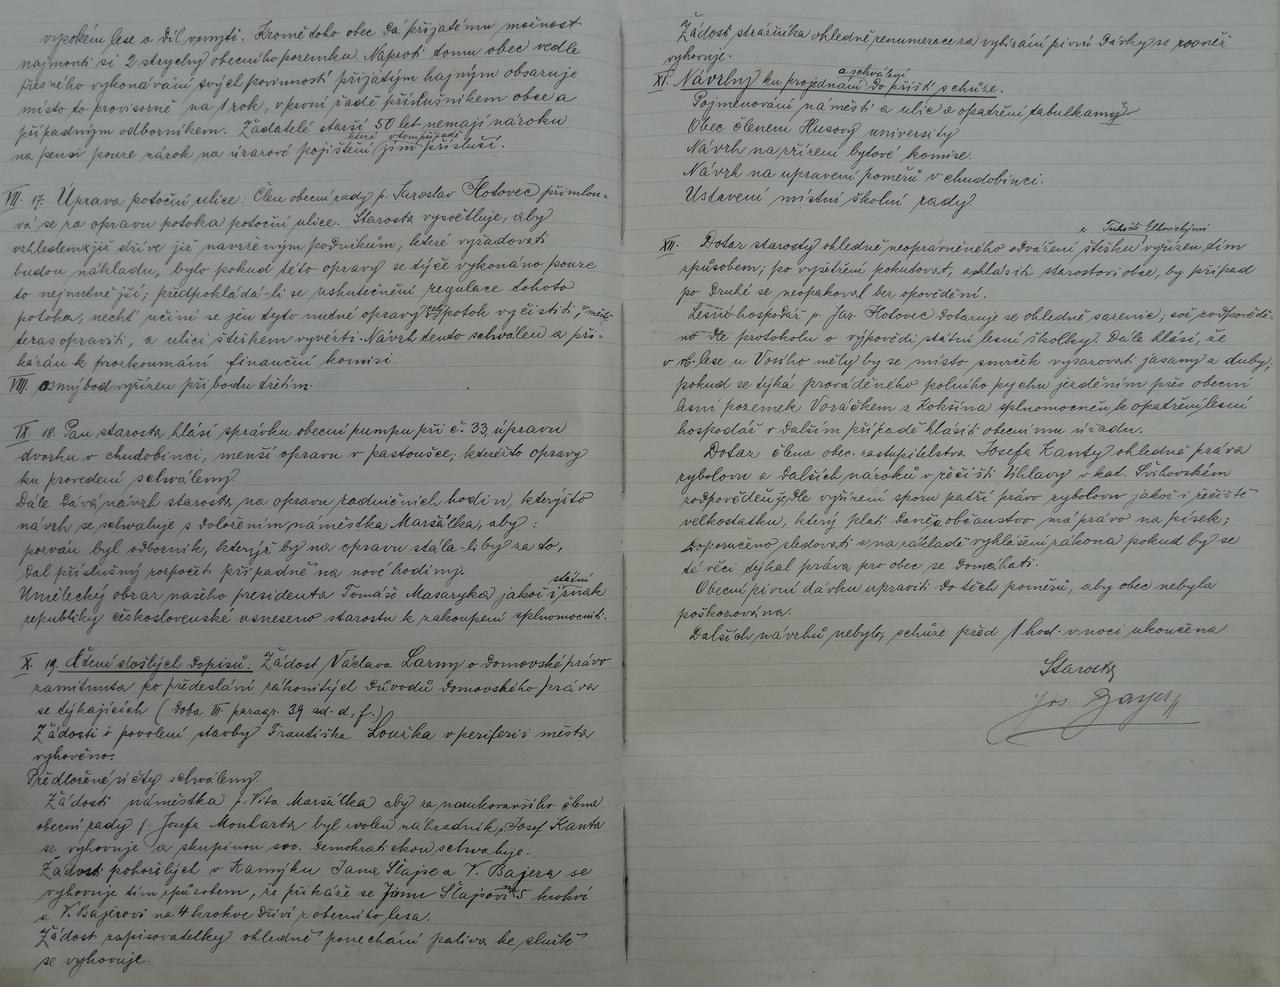 vysokém lese a díl vymýtí. Kromě toho obec dá přijatému možnost
najmouti si 2 strychy obecního pozemku. Naproti tomu obec vedle
přesného vykonávání svých povinností přijatým hajným obsazuje
místo to provisorně na 1 rok, v první řadě příslušníkem obce a
případným odborníkem. Žadatelé starší 50 let nemají nároku
na pensi pouze nárok na úrazové pojištění které v tom případě jim přísluší.
VII. 17. Úprava potoční ulice: Člen obecní rady p. Jaroslav Hotovec přimlou-
vá se za opravu potoka potoční ulice. Starosta vysvětluje, aby
vzhledem k již dříve již navrženým podnikům, které vyžadovati
budou nákladu, bylo pokud této opravy se týče vykonáno pouze
to nejnutnější; předpokládá-li se uskutečnění regulace tohoto
potoka, nechť učiní se jen tyto nutné opravy potok vyčistiti,
teras opraviti, a ulici štěrkem vyvézti. Návrh tento schválen a při-
kázán k prozkoumání finanční komisi.
VIII. osmý bod vyřízen při bodu třetím.
IX. 18. Pan starosta hlásí správku obecní pumpy při č. 33, úpravu
dvorku v chudobinci, menší opravu v pastoušce, kteréžto opravy
ku provedení schváleny.
Dále dává návrh starosta, na opravu radničních hodin, kterýžto
návrh se schvaluje s doložením náměstka Maršálka, aby:
pozván byl odborník, kterýž by na opravu stála-li by za to,
dal příslušný rozpočet případně na nové hodiny.
Umělecký obraz našeho presidenta Tomáše Masaryka jakož i státní znak
republiky československé usneseno starostu k zakoupení splnomocniti.
X. 19. Čtení došlých dopisů. Žádost Václava Lazny o domovské právo
zamítnuta po předeslání zákonitých důvodů domovského práva
se týkajících (Doba III. paragr. 39 ad. d, f.)
Žádosti o povolení stavby Františka Loužka v periferii města
vyhověno.
Předložené účty schváleny.
Žádosti náměstka p. Víta Maršálka aby za narukovavšího člena
obecní rady p. Josefa Mouharta byl zvolen náhradník p. Josef Kanta
se vyhovuje a skupinou soc. demokratickou schvaluje.
Žádosti pohořelých v Kamýku Jana Šlajse a V. Bajera se
vyhovuje tím způsobem, že přikáže se Janu Šlajsovi na 5 krokví
a V. Bajerovi na 4 krokve dříví z obecního lesa.
Žádost zapisovatelky ohledně ponechání paliva ke službě
se vyhovuje.
Žádosti strážníka ohledně renumerace za vybírání pivní dávky se rovněž
vyhovuje.
XI. Návrhy ku projednání a schválení do příští schůze.
Pojmenování náměstí a ulic a opatření tabulkamy
Obec členem Husovy university
Návrh na zřízení bytové komise.
Návrh na upravení poměrů v chudobinci.
Ustavení místní školní rady
XII. Dotaz starosty ohledně neoprávněného odvážení štěrku vyřízen tím
způsobem; po vyšetření pokutovati, a hlásiti starostovi obce, by případ
po druhé se neopakoval bez opovědění.
Lesní hospodář p. Jar. Hotovec dotazuje se ohledně sazenic, což zodpovědě-
no dle protokolu o výpovědi státní lesní školky. Dále hlásí, že
v ob. lese u Vosího měly by se místo smrček vysazovati jasany a duby,
pokud se týká prováděného polního pychu ježděním přes obecní
lesní pozemek Voráčkem z Kokšína splnomocněn k opatření lesní
hospodář v dalším případě hlásiti obecnímu úřadu.
Dotaz člena obec. zastupitelstva Josefa Kanty ohledně práva
rybolovu a dalších nároků v řečišti Úhlavy v kat. Švihovském
zodpověděn, dle vyřízení sporu patří právo rybolovu jakož i řečiště
velkostatku, který platí daně a občanstvo má právo na písek;
doporučeno sledovati a na základě vyhlášení zákona pokud by se
té věci týkal práva pro obec se domáhati.
Obecní pivní dávku upraviti do těch poměrů, aby obec nebyla
poškozována.
Dalších návrhů nebylo, schůze před 1 hod. v noci ukončena
Starosta
Jos. Bayer